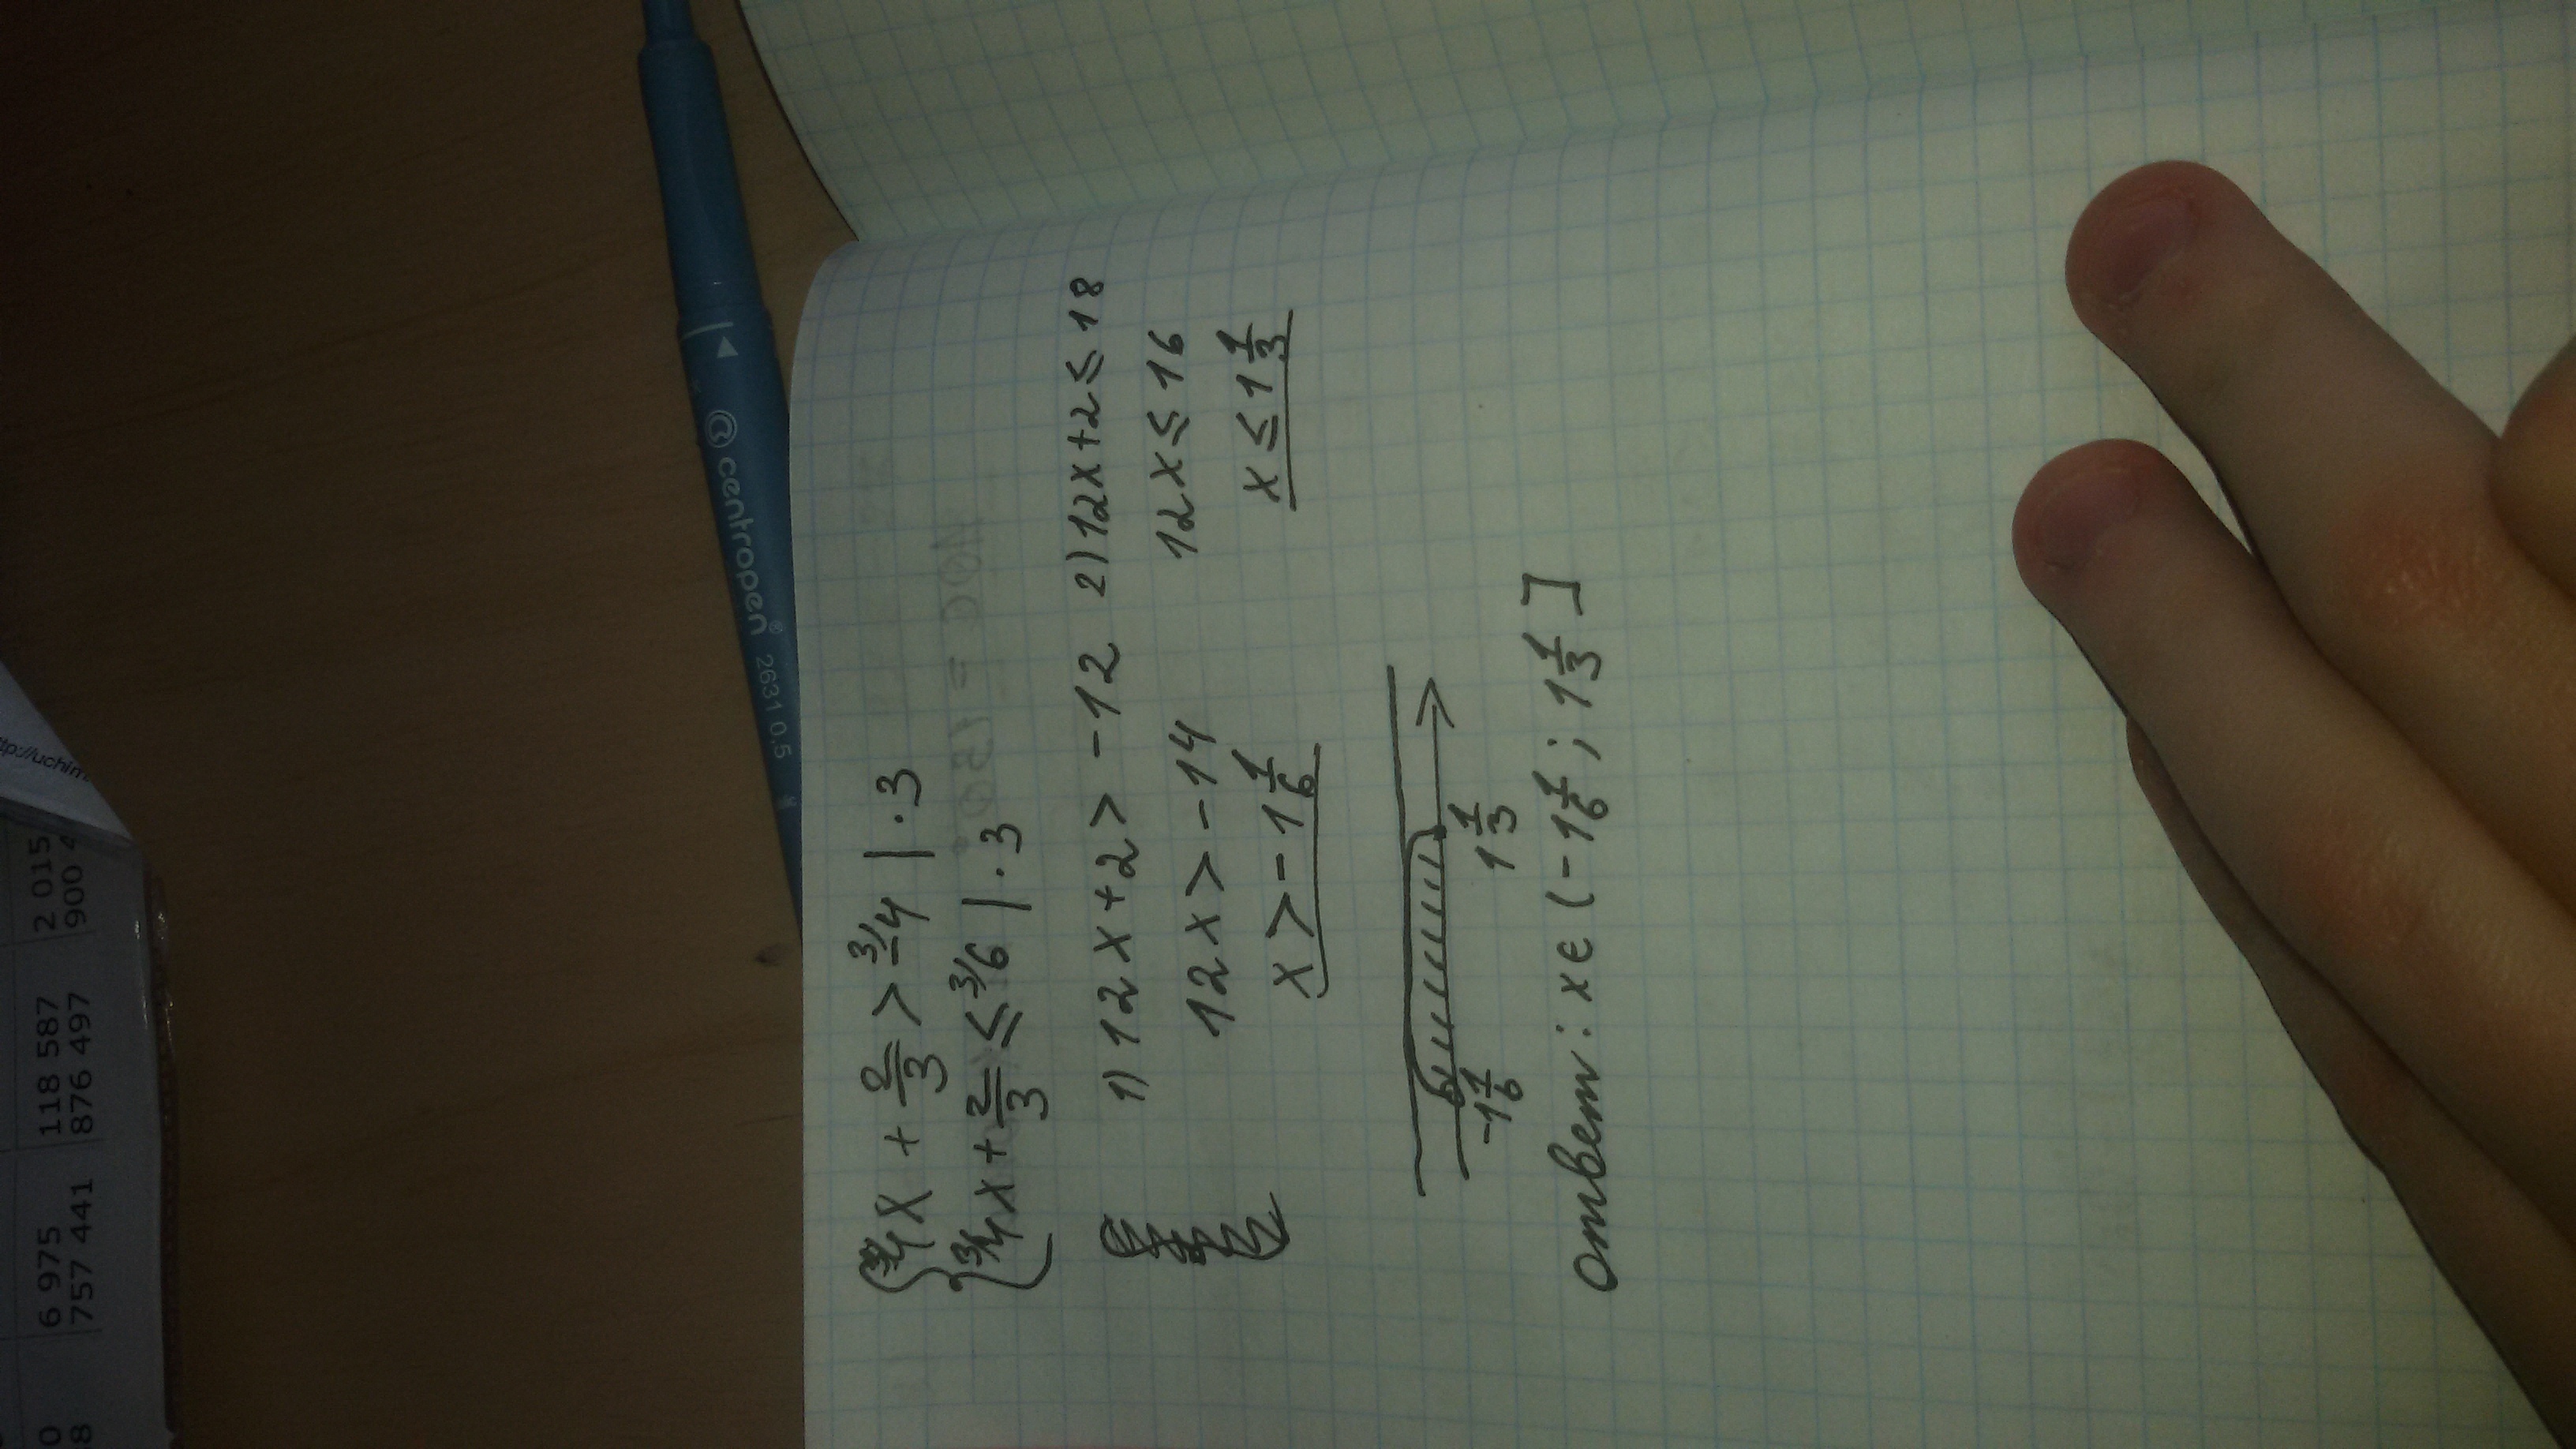 { ³⁾4x + 2/3 > ³⁾-4 | · 3
{ ³⁾4x + 2/3 ≤ ³⁾6 | · 3
1) 12x + 2 > -12 2) 12x + 2 ≤ 18
12x > -14 12x ≤ 16
x > -1 1/6 x ≤ 1 1/3
-1 1/6 1 1/3
Ответ: x ∈ (-1 1/6 ; 1 1/3]
centropen® 2631 0.5
6 975 118 587 2 015
757 441 876 497 900 4
0
8